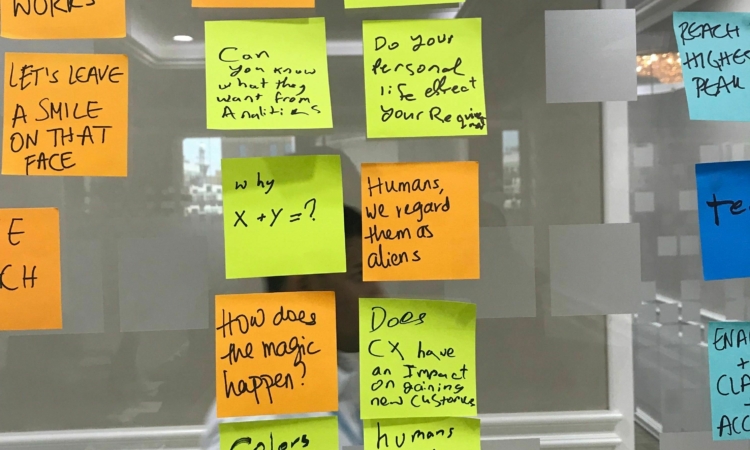 WORKS
LET'S LEAVE
A SMILE
ON THAT
FACE
E
CH
Can
you know
what they
want from
Do your
Personal
life effect
your
why
X + Y = ?
Humans,
we regard
them as
aliens
How does
the magic
happen?
Does
CX have
an Impact
on gaining
new
Colors
humans
REACH
HIGHES
PEAK
Te
ENA
+
CLA
ACC